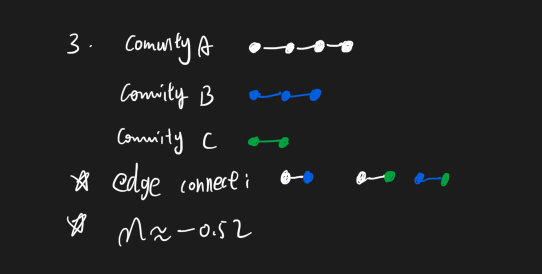 3. Comunity A
Comunity B
Comunity C
☆ edge connect:
☆ M ≈ -0.52